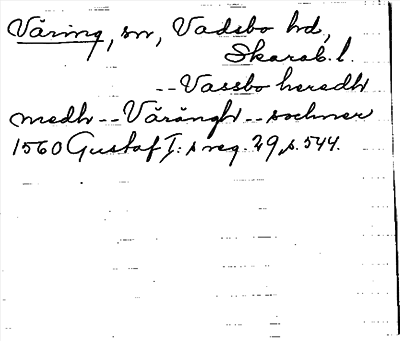 Väring, sn, Vadsbo hd,
Skarab. l.
-- Vassbo heredh
medh -- Värängh -- sochner
1560 Gustaf I:s reg. 29, s. 544.